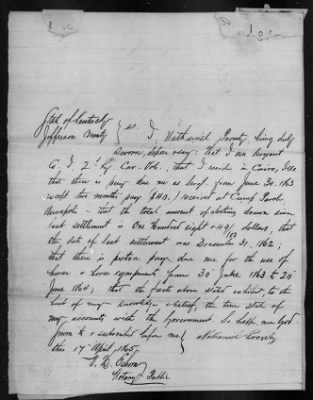 State of Kentucky
Jefferson County } ss. I, Nathaniel being duly
sworn, depose & say: That I am Sergeant
G. 2d Ky Cav. Vols., that I reside in Cairo, Ills
that there is pay due me as Sergt. from June 30. 1863
except two months pay received at Camp Parole
Annapolis - that the total amount of clothing drawn since
last settlement is One Hundred eight & 49/100 dollars, that
the date of last settlement was December 31, 1862;
that there is portion pay due me for the use of
horse & horse equipments from 30 June 1863 to 20
June 1864; that the facts above stated exhibit, to the
best of my knowledge & belief, the true state of
my accounts with the Government. So help me God
Sworn to & subscribed before me } Nathaniel
this 17 April, 1865.
Notary Public